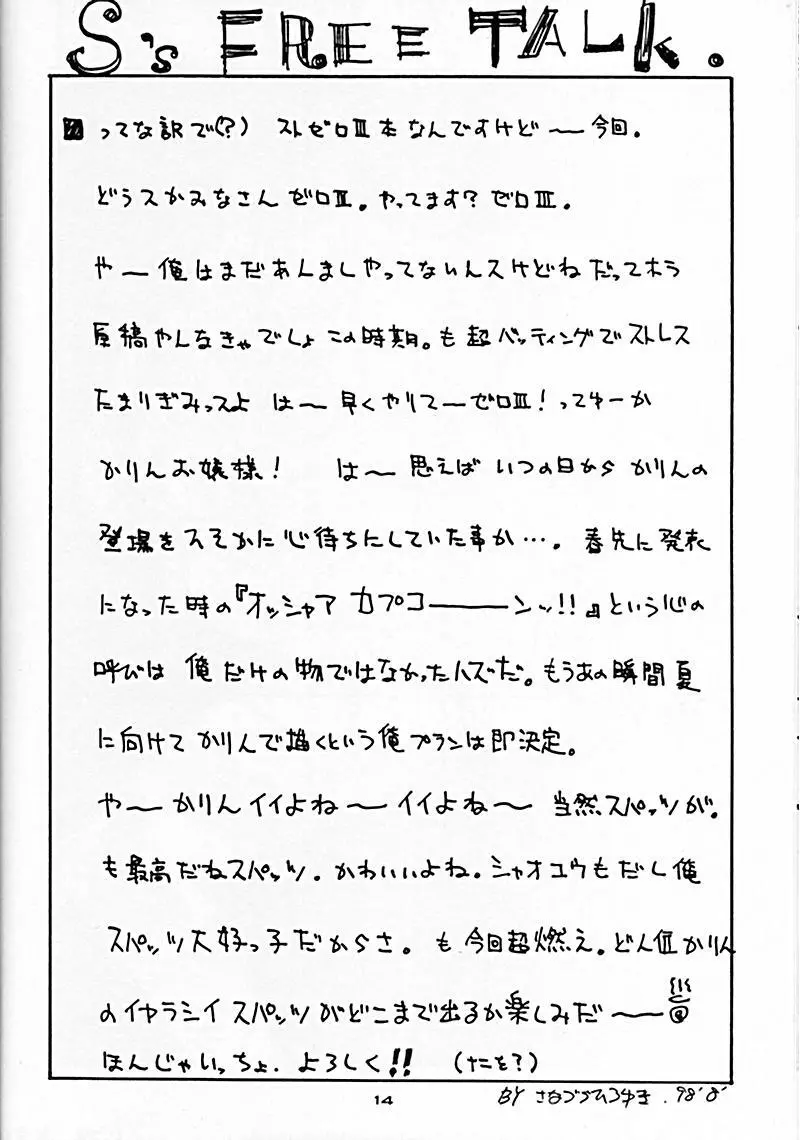 S's FREE TALK.
ってな訳で(?) ストゼロⅢ本なんですけど〜今回。
どうスかみなさんゼロⅢ。やってます?ゼロⅢ。
や〜俺はまだあんましやってないんスけどねだってホラ
原稿やんなきゃでしょこの時期。も超バッティングでストレス
たまりぎみっスよ は〜早くやりてーゼロⅢ!ってゆーか
かりんお嬢様! は〜思えばいつの日からかりんの
登場をスそかに心待ちにしていた事か…。春先に発表
になった時の『オッシャア カプコーーーンッ!!』という心の
呼びは 俺だけの物ではなかったハズだ。もうあの瞬間夏
に向けて かりんで描くという俺プランは即決定。
や〜かりんイイよね〜イイよね〜 当然スパッツが。
も最高だねスパッツ。かわいいよね。シャオユウもだし俺
スパッツ大好っ子だからさ。も今回超燃え。どん位かりん
のイヤラシイスパッツがどこまで出るか楽しみだ〜
ほんじゃいっちょ.よろしく!! (ナニを?)
14
BY さなづらひろゆき.'98'8'